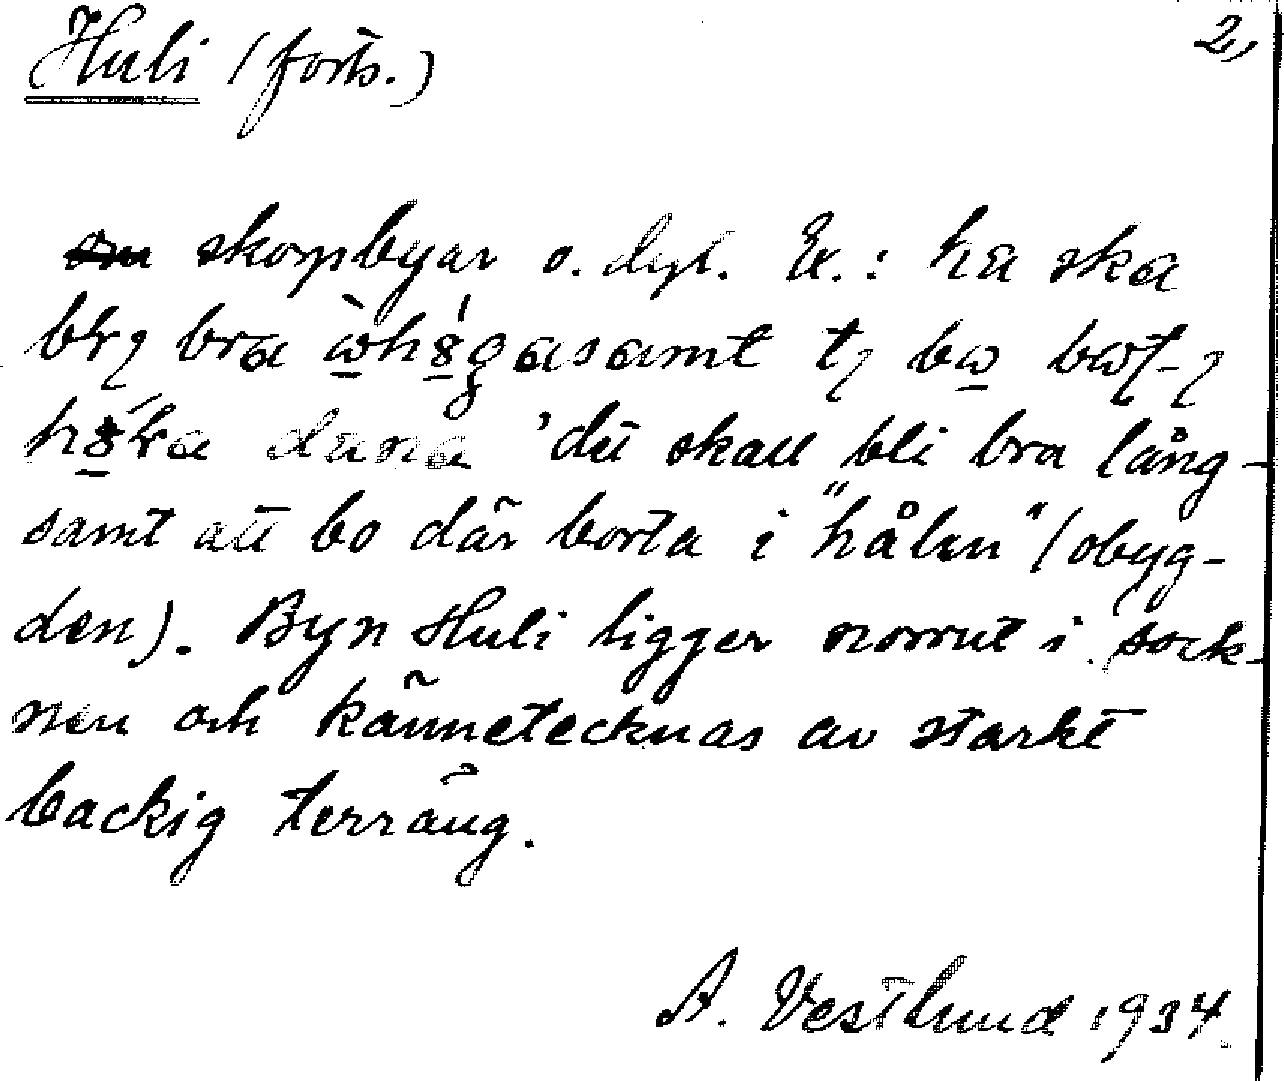 Huli (forts.) 2,
skogsbyar o. dyl. Ex.: ha ska
bra
'dä skall bli bra lång-
samt att bo där borta i "hålen" (obyg-
den). Byn Huli ligger norrut i sock-
nen och kännetecknas av starkt
backig terräng.
A. Vestlund 1934.